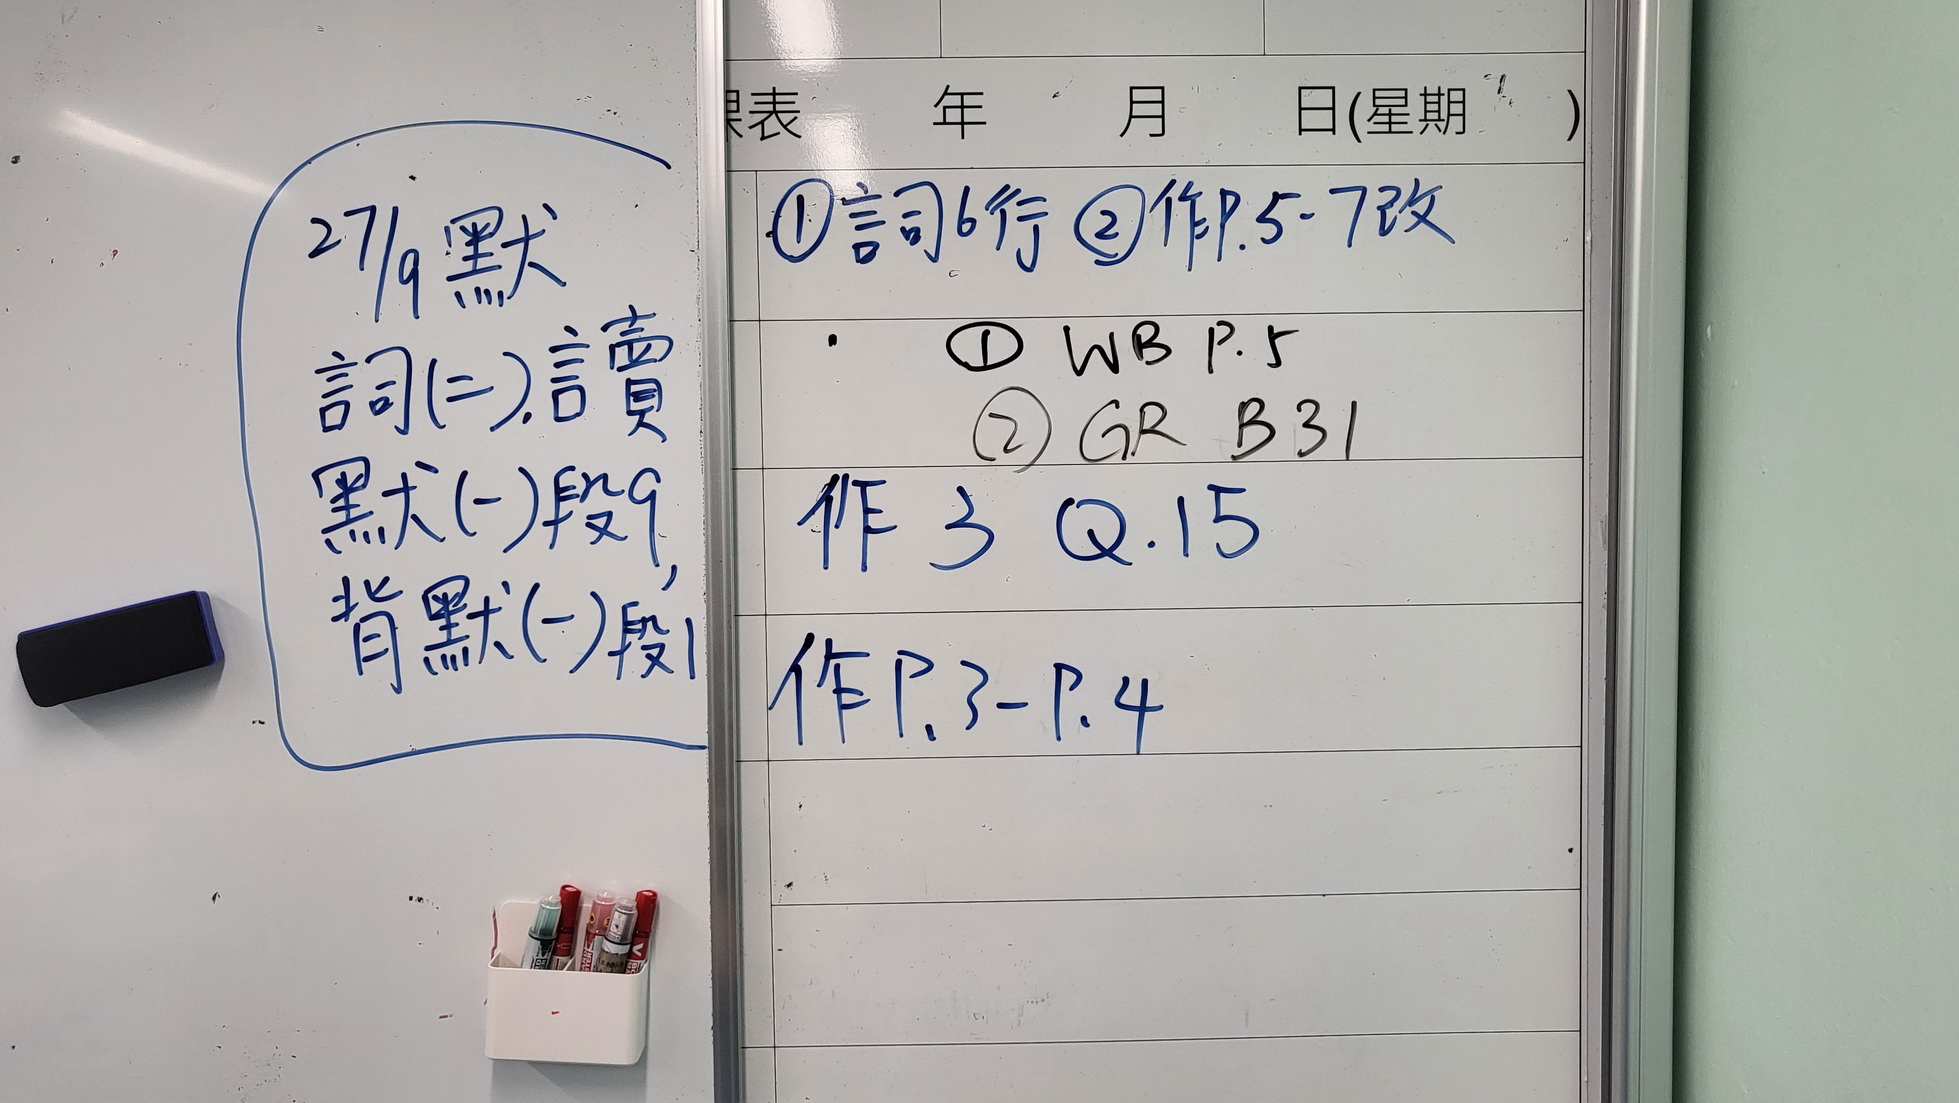 27/9 默
詞(二).讀
默(一)段9,
背默(一)段1
課表 年 月 日(星期 )
①詞6行 ②作P.5-7改
① WB P.5
② GR B31
作 3 Q.15
作P.3-P.4